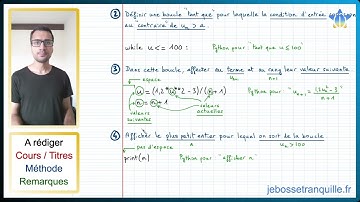 ② Définir une boucle "tant que" pour laquelle la condition d'entrée
au contraire de uₙ > a.
while u <= 100 :
Python pour "tant que u ≤ 100"
③ Dans cette boucle, affecter au terme et au rang leur valeur suivante
uₙ n
espace
u = (1,2*u**2-3)/(n+1)
Python pour "uₙ₊₁ =
n = n+1
valeurs suivantes
valeurs actuelles
④ Afficher le plus petit entier pour lequel on sort de la boucle
pas d'espace
n
uₙ > 100
print(n)
Python pour "afficher n"
A rédiger
Cours / Titres
Méthode
Remarques
jebossetranquille.fr